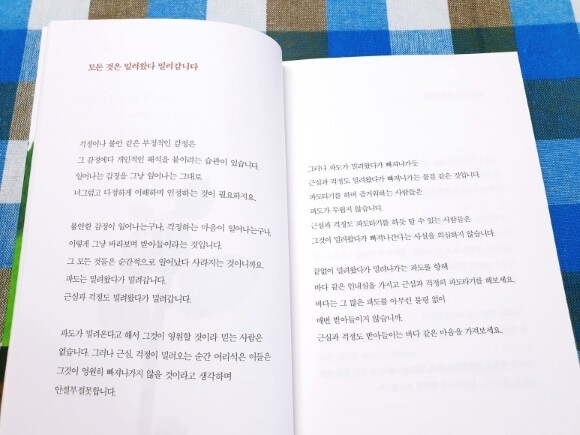 모든 것은 밀려왔다 밀려갑니다
걱정이나 불안 같은 부정적인 감정은
그 감정에다 개인적인 해석을 붙이려는 습관이 있습니다.
일어나는 감정을 그냥 일어나는 그대로
너그럽고 다정하게 이해하며 인정하는 것이 필요하지요.
불안한 감정이 일어나는구나, 걱정하는 마음이 일어나는구나,
이렇게 그냥 바라보며 받아들이라는 것입니다.
그 모든 것들은 순간적으로 일어났다 사라지는 것이니까요.
파도는 밀려왔다가 밀려갑니다.
근심과 걱정도 밀려왔다가 밀려갑니다.
파도가 밀려온다고 해서 그것이 영원할 것이라 믿는 사람은
없습니다. 그러나 근심, 걱정이 밀려오는 순간 어리석은 이들은
그것이 영원히 빠져나가지 않을 것이라고 생각하며
안절부절못합니다.
그러나 파도가 밀려왔다가 빠져나가듯
근심과 걱정도 밀려왔다가 빠져나가는 물결 같은 것입니다.
파도타기를 하며 즐거워하는 사람들은
파도가 두렵지 않습니다.
근심과 걱정도 파도타기를 하듯 탈 수 있는 사람들은
그것이 밀려왔다가 빠져나간다는 사실을 의심하지 않습니다.
끝없이 밀려왔다가 밀려나가는 파도를 향해
바다 같은 인내심을 가지고 근심과 걱정의 파도타기를 해보세요.
바다는 그 많은 파도를 아무런 불평 없이
매번 받아들이지 않습니까.
근심과 걱정도 받아들이는 바다 같은 마음을 가져보세요.